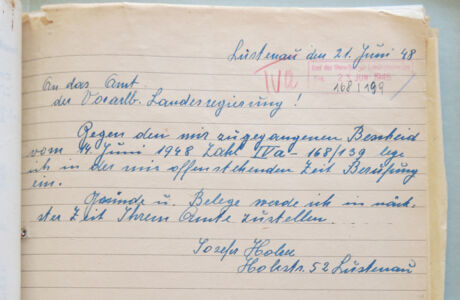 Lustenau den 21. Juni 48
IVa
Amt der Vorarlb. Landesregierung
23. JUNI 1948
168/199
An das Amt
der Vorarlb. Landesregierung!
Gegen den mir zugegangenen Bescheid
vom 14. Juni 1948 Zahl IVa-168/139 lege
ich in der mir offenstehenden Zeit Berufung
ein.
Gründe u. Belege werde ich in näch-
ster Zeit Ihrem Amte zustellen.
Josef
52 Lustenau